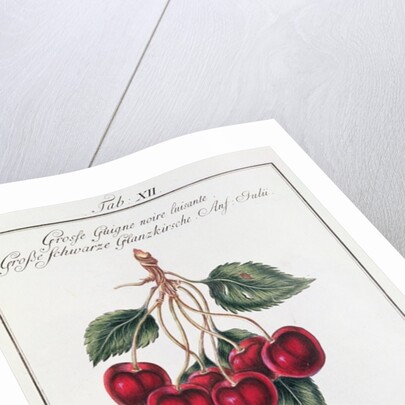 Tab: XII.
Grosse Guigne noire luisante.
Große Schwarze Glanzkirsche. Anf: Julii.